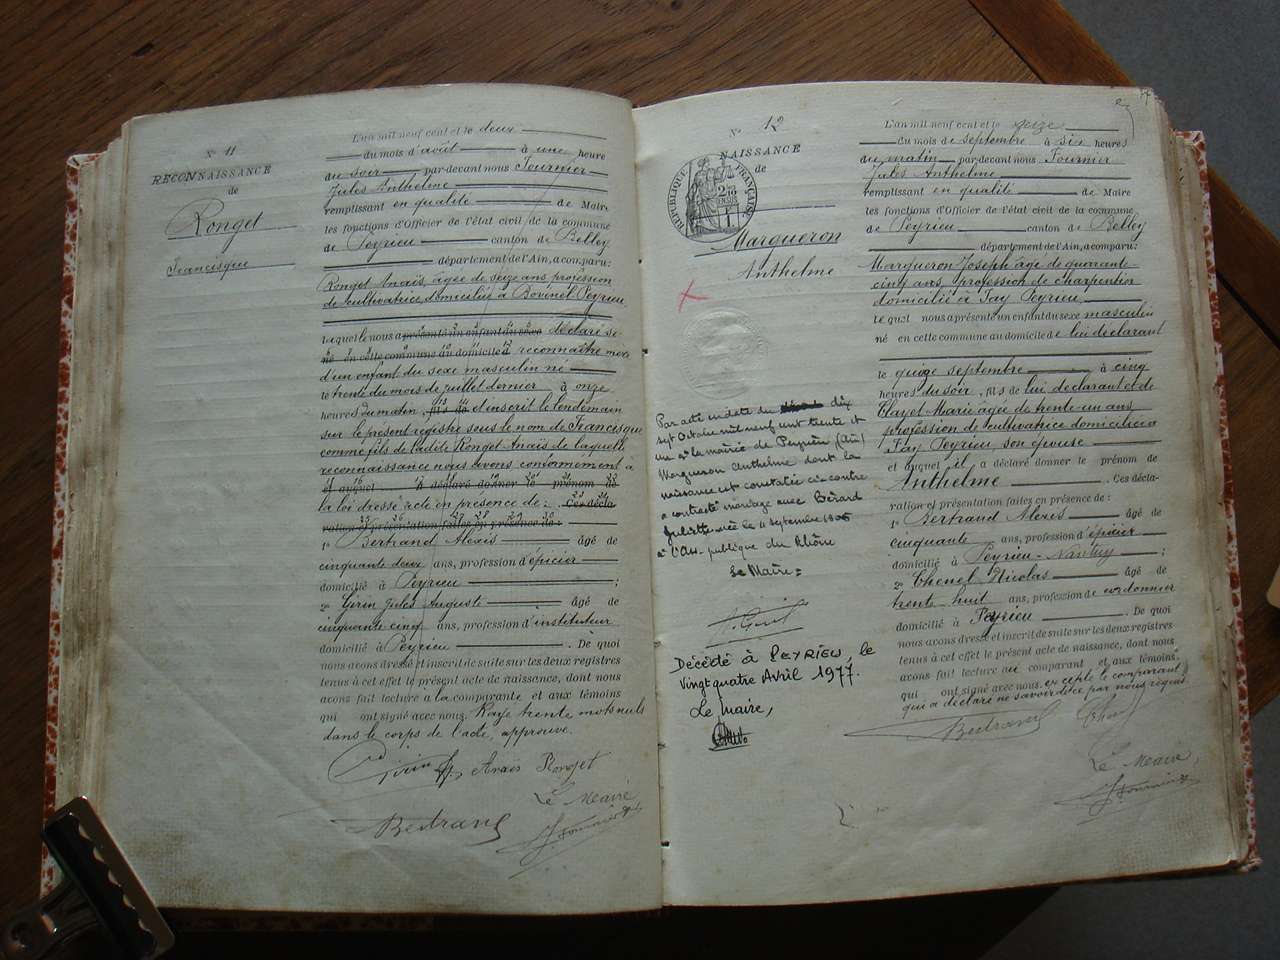 N° 11
RECONNAISSANCE
de
Ronget
Francisque
L'an mil neuf cent et le deux
du mois d'août à une heure
du soir par-devant nous Fournier
Jules Anthelme
remplissant en qualité de Maire
les fonctions d'Officier de l'état civil de la commune
de Peyrieu canton de Belley
département de l'Ain, a comparu:
Ronget Anaïs, âgée de seize ans, profession
de cultivatrice domiciliée à Bovinel Peyrieu,
laquelle nous a présenté un enfant du sexe déclaré se
né en cette commune au domicile reconnaître mère
d'un enfant du sexe masculin né
le trente du mois de juillet dernier à onze
heures du matin, fils de et inscrit le lendemain
sur le présent registre sous le nom de Francisque
comme fils de ladite Ronget Anaïs de laquelle
reconnaissance nous avons conformément à
et auquel a déclaré donner le prénom de
la loi dressé acte en présence de: Ces décla
ration et présentation faites en présence de:
1° Bertrand Alexis âgé de
cinquante deux ans, profession d'épicier
domicilié à Peyrieu ;
2° Girin Jules Auguste âgé de
cinquante cinq ans, profession d'instituteur
domicilié à Peyrieu . De quoi
nous avons dressé et inscrit de suite sur les deux registres
tenus à cet effet le présent acte de naissance, dont nous
avons fait lecture a la comparante et aux témoins
qui ont signé avec nous. Rayé trente mots nuls
dans le corps de l'acte, approuvé.
Girin Anaïs Ronget
Le Maire
Bertrand J. Fournier
N° 12
NAISSANCE
de
RÉPUBLIQUE FRANÇAISE
Margueron
Anthelme
Par acte en date du dix
sept Octobre mil neuf cent trente et
un à la mairie de Peyrieu (Ain)
Margueron Anthelme dont la
naissance est constatée ci-contre
a contracté mariage avec Bérard
Juliette née le 11 septembre
à l'Ass. publique du Rhône
Le Maire =
Décédé à PEYRIEU, le
Vingt quatre Avril 1977.
Le maire,
L'an mil neuf cent et le quinze
du mois de septembre à six heures
du matin par-devant nous Fournier
Jules Anthelme
remplissant en qualité de Maire
les fonctions d'Officier de l'état civil de la commune
de Peyrieu canton de Belley
département de l'Ain, a comparu:
Margueron Joseph âgé de quarante
cinq ans, profession de charpentier
domicilié à Fay Peyrieu,
lequel nous a présenté un enfant du sexe masculin
né en cette commune au domicile de lui déclarant
le quinze septembre à cinq
heures du soir, fils de lui déclarant et de
Clayet Marie âgée de trente un ans
profession de cultivatrice domiciliée à
Fay Peyrieu, son épouse
et auquel il a déclaré donner le prénom de
Anthelme . Ces décla-
ration et présentation faites en présence de:
1° Bertrand Alexis âgé de
cinquante ans, profession d'épicier
domicilié à Peyrieu- ;
2° Thenel Nicolas âgé de
trente huit ans, profession de cordonnier
domicilié à Peyrieu . De quoi
nous avons dressé et inscrit de suite sur les deux registres
tenus à cet effet le présent acte de naissance, dont nous
avons fait lecture au comparant et aux témoins
qui ont signé avec nous. excepté le comparant
qui a déclaré ne savoir de ce par nous requis
Bertrand
Le Maire,
J. Fournier